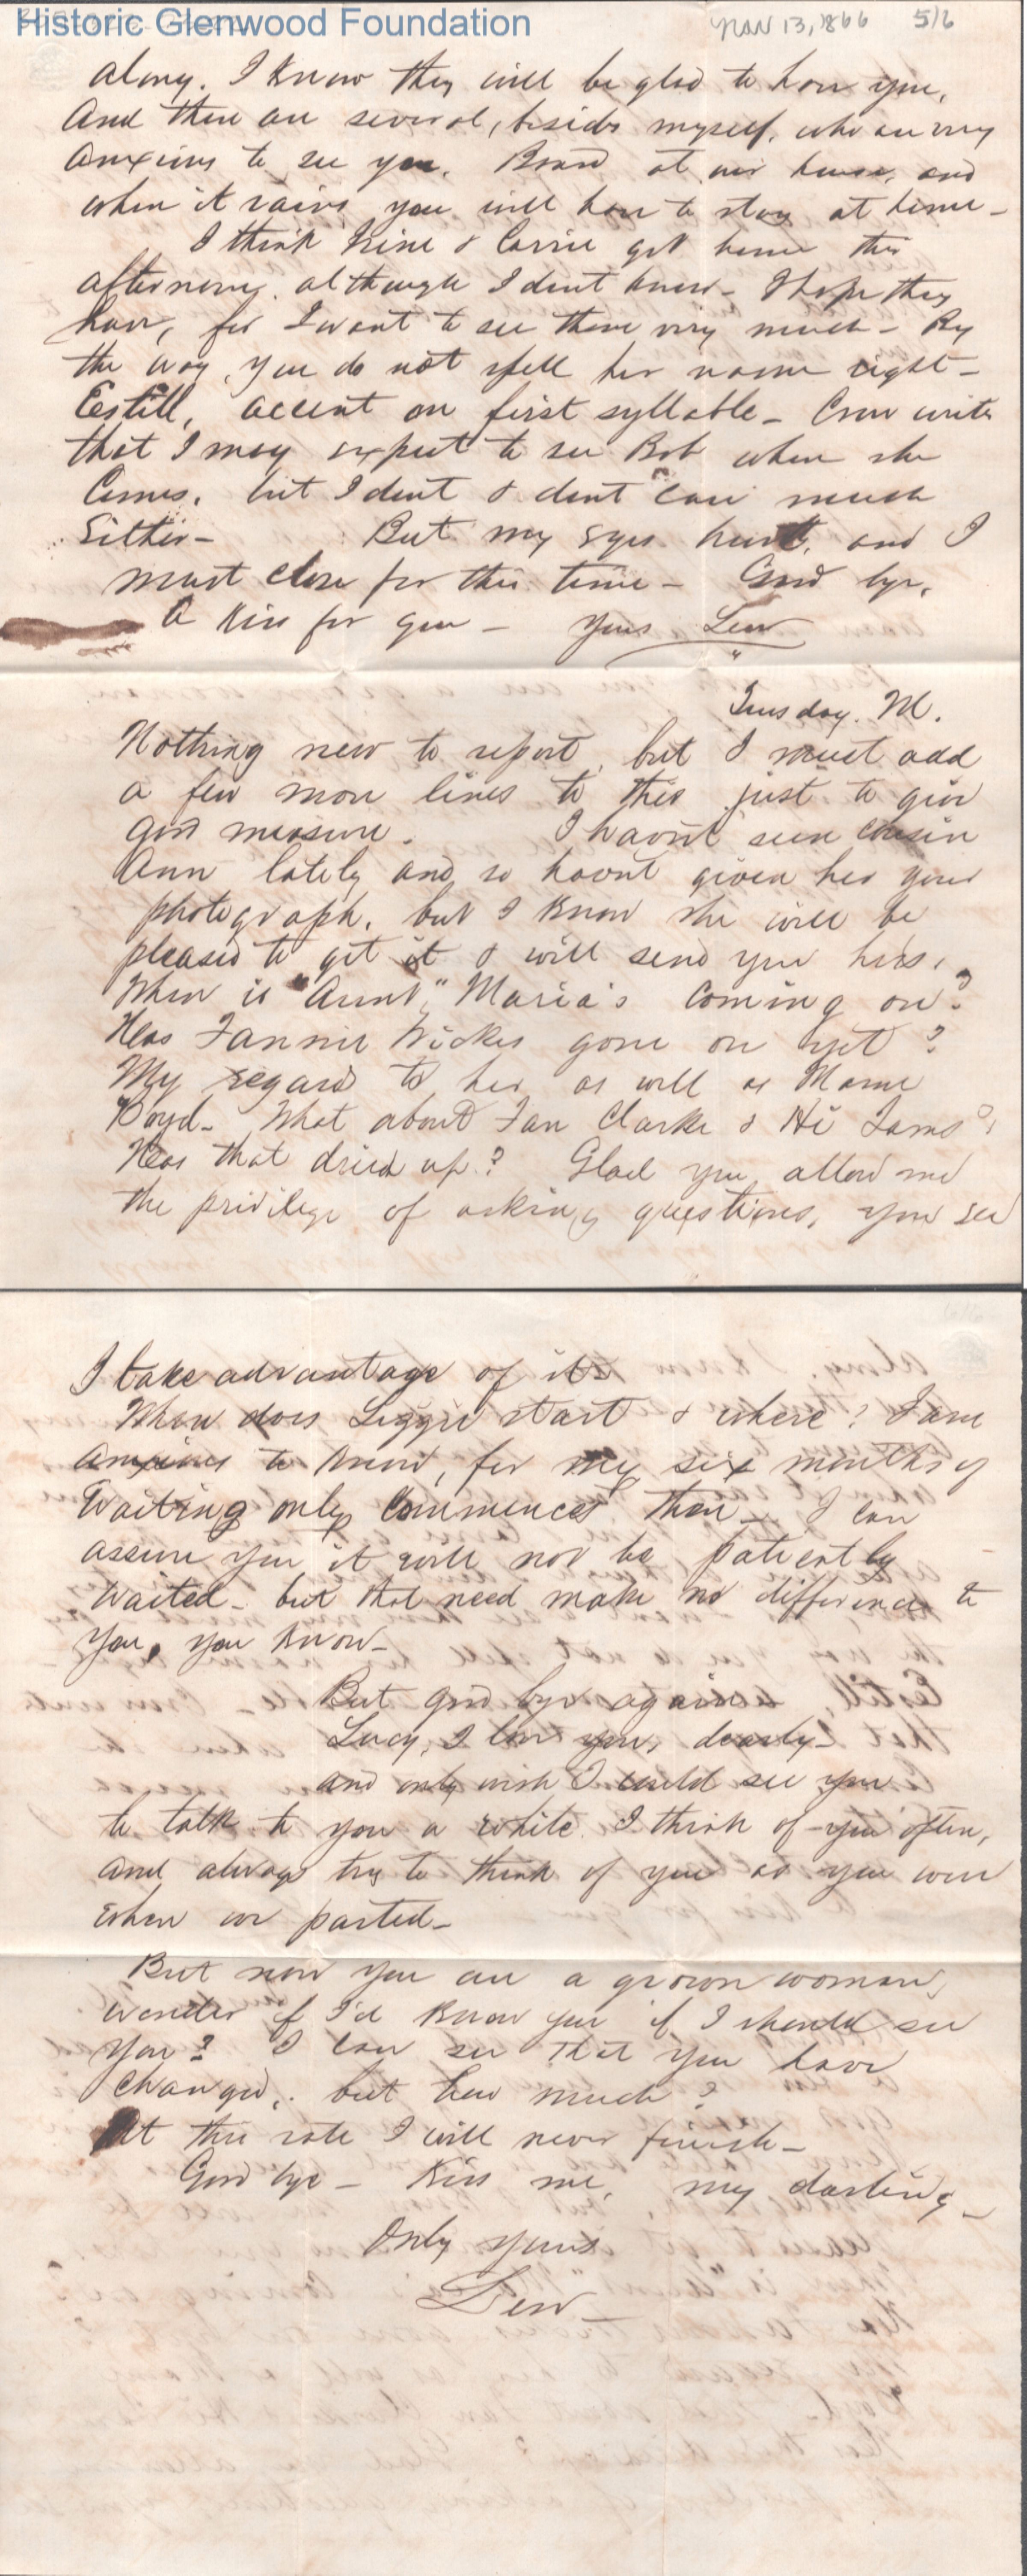 Historic Glenwood Foundation
Nov 13, 1866 5/6
along. I know they will be glad to have you,
And there are several, besides myself, who are very
anxious to see you. Board at our house, and
when it rains you will have to stay at home -
I think & Carrie got home this
afternoon, although I dont know - I hope they
have, for I want to see them very much - By
the way, you do not spell her name right -
Eestill, accent on first syllable - writes
that I may expect to see Bob when she
Comes, but I dont & dont care much
Either - But my eyes hurt, and I
must close for this time - Good bye,
A Kiss for you - Yours Lew
Tuesday. M.
Nothing new to report, but I must add
a few more lines to this just to give
good measure. I havnt seen cousin
Ann lately and so havnt given her your
photograph, but I know she will be
pleased to get it & will send you hers,
When is "Aunt" Maria's coming on?
Has Fannie Wickes gone on yet?
My regards to her as well as Mame
Boyd - What about Fan Clarke & Hi Iams?
Has that dried up? Glad you allow me
the privilege of asking questions, you see
I take advantage of it
When does Liggie start & where? I am
anxious to know, for my six months of
Waiting only commences then - I can
assure you it will not be patiently
waited - but that need make no difference to
you, you know -
But good bye again
Lucy, I love you, dearly -
and only wish I could see you
to talk to you a while I think of you often,
and always try to think of you as you were
when we parted -
But now you are a grown woman,
wonder if I'd know you if I should see
You? I can see that you have
changed, but how much?
At this rate I will never finish -
Good bye - Kiss me, my darling -
Only yours
Lew -